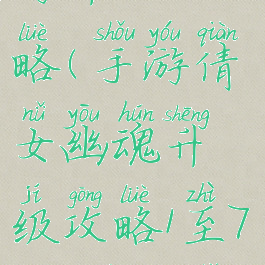 lüè shǒu yóu qiàn
略(手游倩
nǚ yōu hún shēng
女幽魂升
jí gōng lüè zhì
级攻略1至7